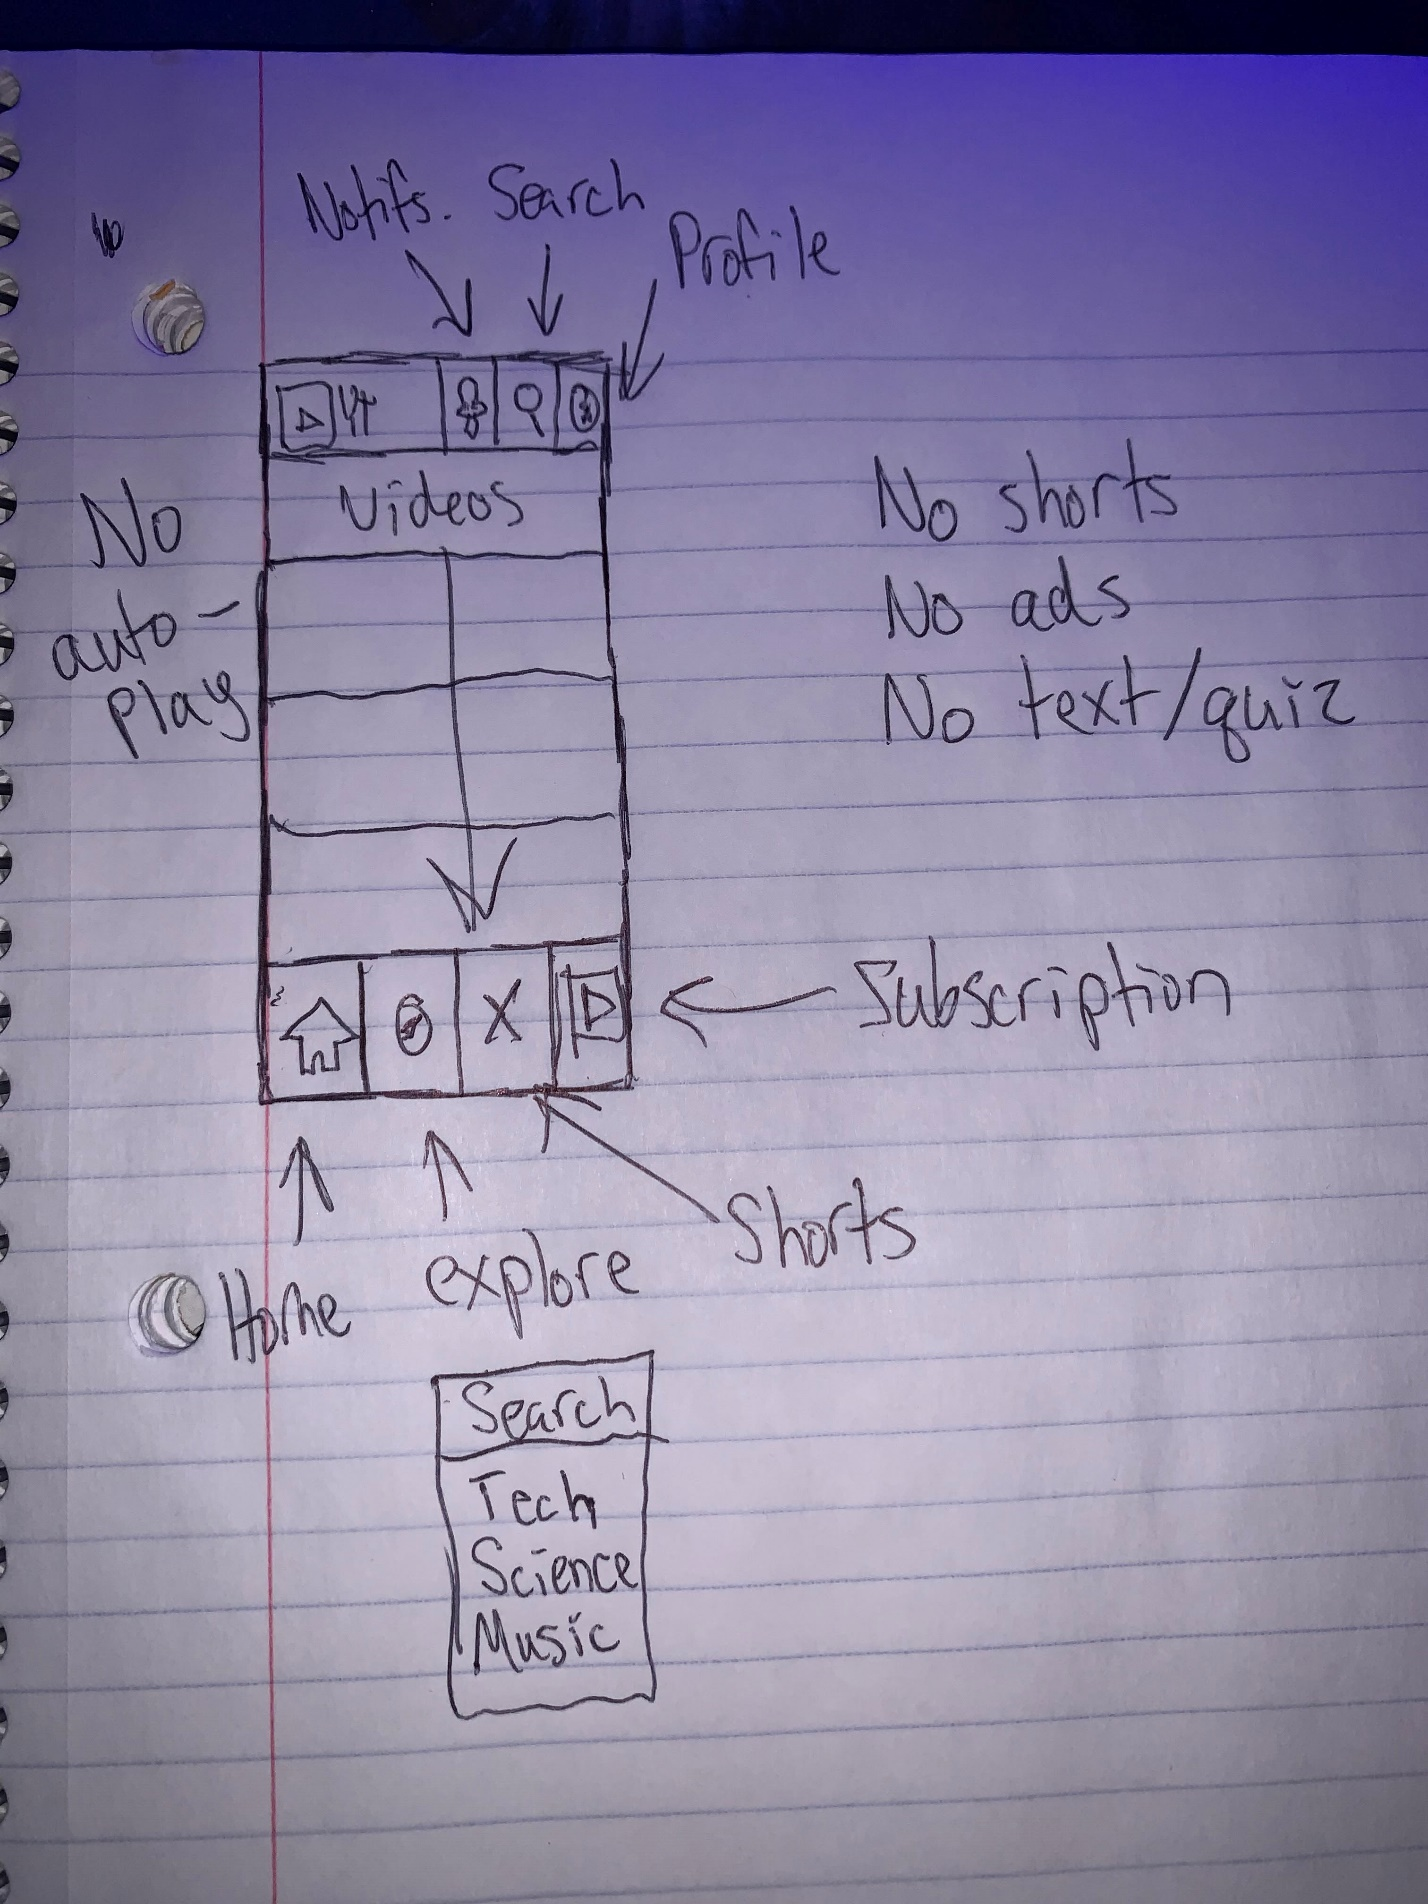 Notifs. Search
Profile
YT
Videos
No
auto-
play
No shorts
No ads
No text/quiz
X
Subscription
Shorts
Home
explore
Search
Tech
Science
Music